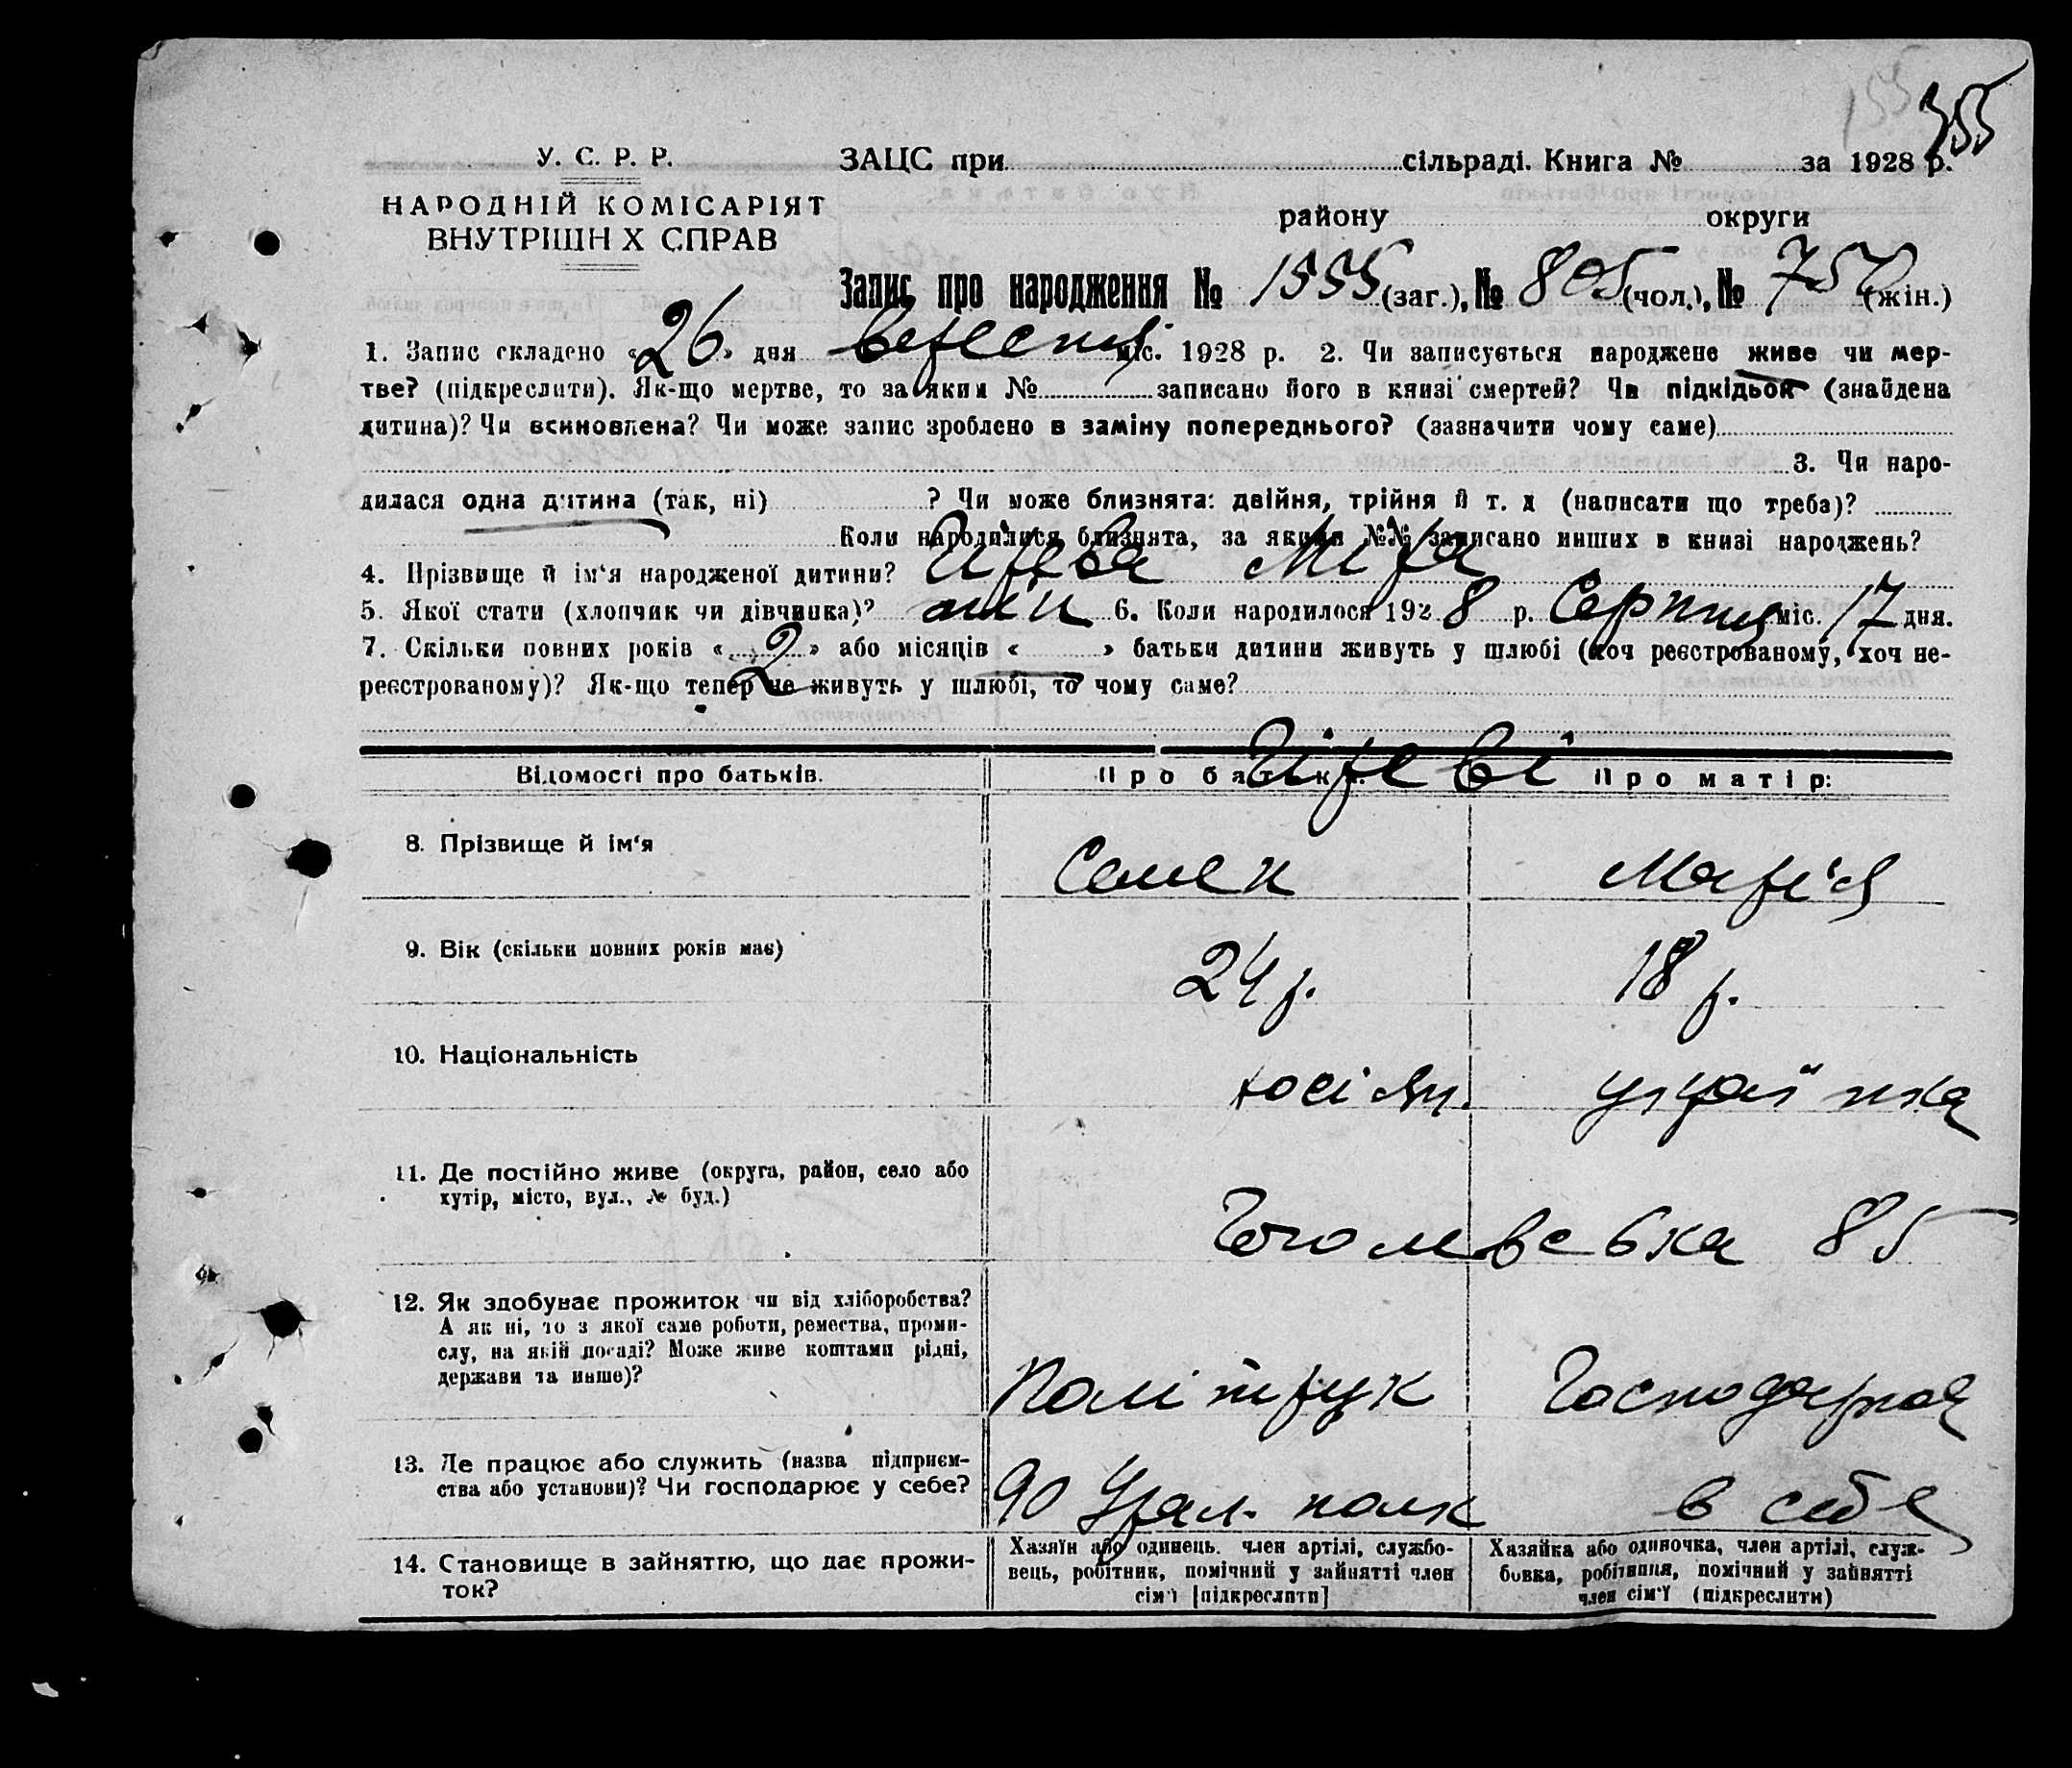 155 355
У. С. Р. Р.
НАРОДНІЙ КОМІСАРІЯТ
ВНУТРІШН Х СПРАВ
ЗАЦС при сільраді. Книга № за 1928 р.
району округи
Запис про народження № 1555 (заг.), № 805 (чол.), № 750 (жін.)
1. Запис складено «26» дня вересня міс. 1928 р. 2. Чи записується народжене живе чи мер-
тве? (підкреслити). Як-що мертве, то за яким № записано його в книзі смертей? Чи підкідьок (знайдена
дитина)? Чи всиновлена? Чи може запис зроблено в заміну попереднього? (зазначити чому саме)
3. Чи наро-
дилася одна дитина (так, ні) ? Чи може близнята: двійня, трійня й т. д (написати що треба)?
Коли народилися близнята, за якими №№ записано инших в книзі народжень?
4. Прізвище й ім'я народженої дитини? Мира
5. Якої стати (хлопчик чи дівчинка)? жін 6. Коли народилося 1928 р. Серпня міс. 17 дня.
7. Скільки повних років «2» або місяців « » батьки дитини живуть у шлюбі (хоч реєстрованому, хоч не-
реєстрованому)? Як-що тепер не живуть у шлюбі, то чому саме?
Відомості про батьків. Про батька: Про матір:
8. Прізвище й ім'я Семен Марія
9. Вік (скільки повних років має) 24 р. 18 р.
10. Національність росіян. українка
11. Де постійно живе (округа, район, село або
хутір, місто, вул., № буд.) 85
12. Як здобуває прожиток чи від хліборобства?
А як ні, то з якої саме роботи, ремества, проми-
слу, на якій посаді? Може живе коштами рідні,
держави та инше)? Політрук Господарка
13. Де працює або служить (назва підприєм-
ства або установи)? Чи господарює у себе? 90 Урал. полк в себе
14. Становище в зайняттю, що дає прожи-
ток?
Хазяїн або одинець. член артілі, службо-
вець, робітник, помічний у зайнятті член
сім'ї [підкреслити]
Хазяйка або одиночка, член артілі, служ-
бовка, робітниця, помічний у зайнятті
член сім'ї (підкреслити)